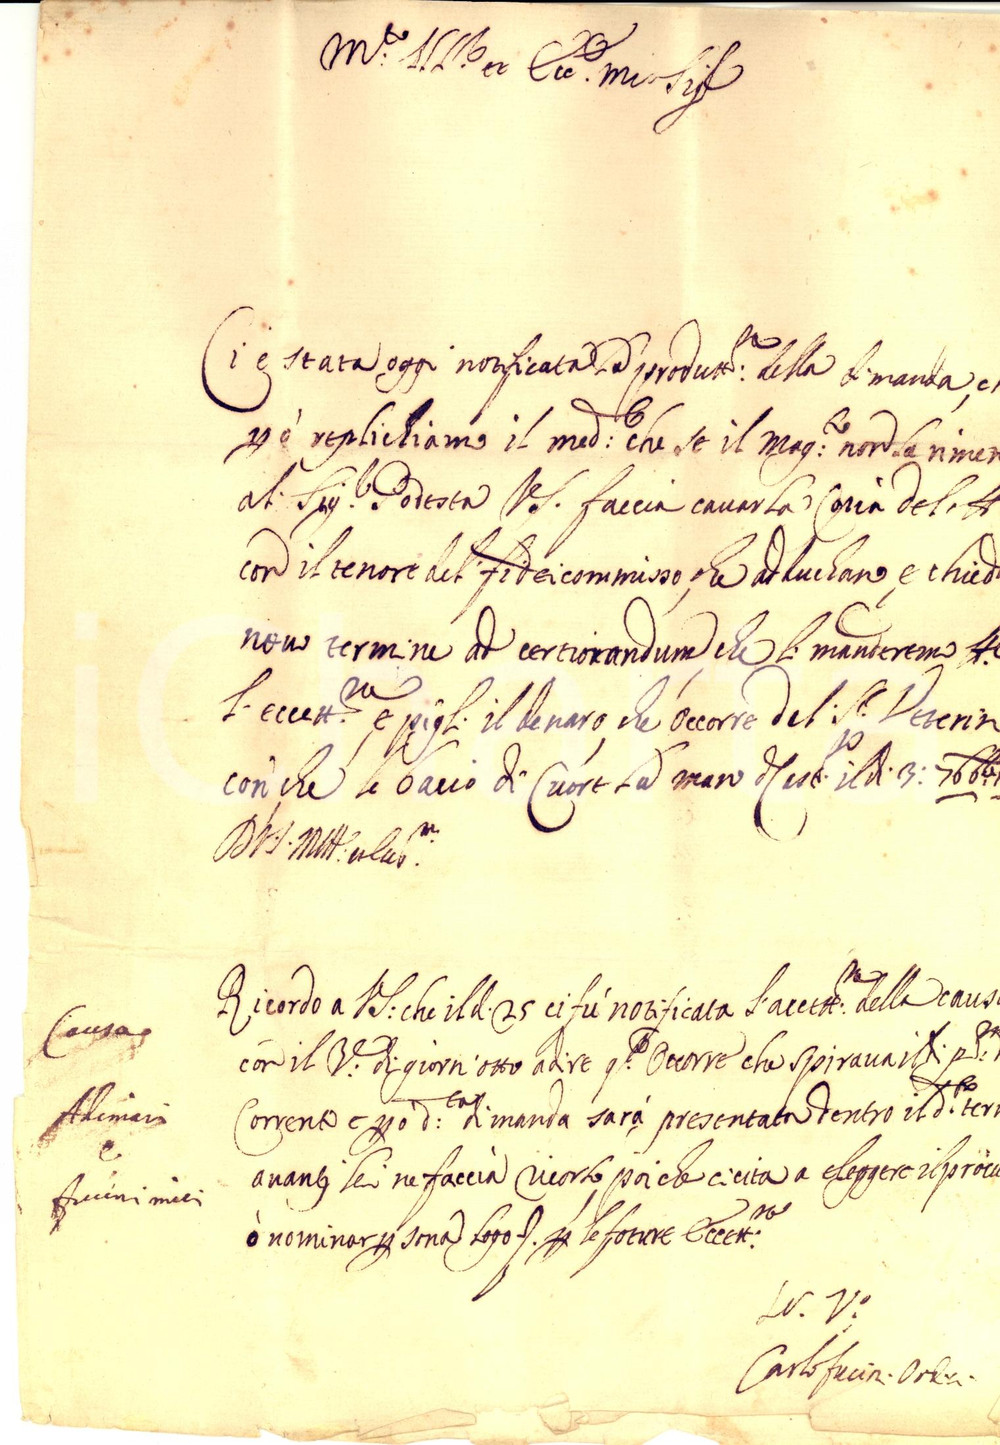 M.to Ill.re et Ecc.te mio Sig.r
Ci è stata oggi notificata la produtt.ne della dimanda, e
pò replichiamo il med.o che se il Mag.to non la rimen
al Sig.r Podestà V.S. faccia cavarla Copia del
con il tenore del fideicommisso, che adduchano, e chied
novo termine ad certiorandum, che li manderemo
l'eccett.ne e pigli il denaro, che occorre del S.r Veterin
con che le bacio di Cuore la mano il dì 3: 7bre
D.V.S. M.to
Causa
Adimari
e
fucini miei
Ricordo a V.S. che il dì 25 ci fù notificata l'accett.ne della causa
con il T.e di giorni otto a dire q.to Occorre che spirava il dì p.mo
Corrente e pò d.ta dimanda sarà presentata dentro il d.o term
avanti lei ne faccia ricordo, poiche ci cita a eleggere il procu
ò nominar persona per le future Eccett.ni
Carlo fucini